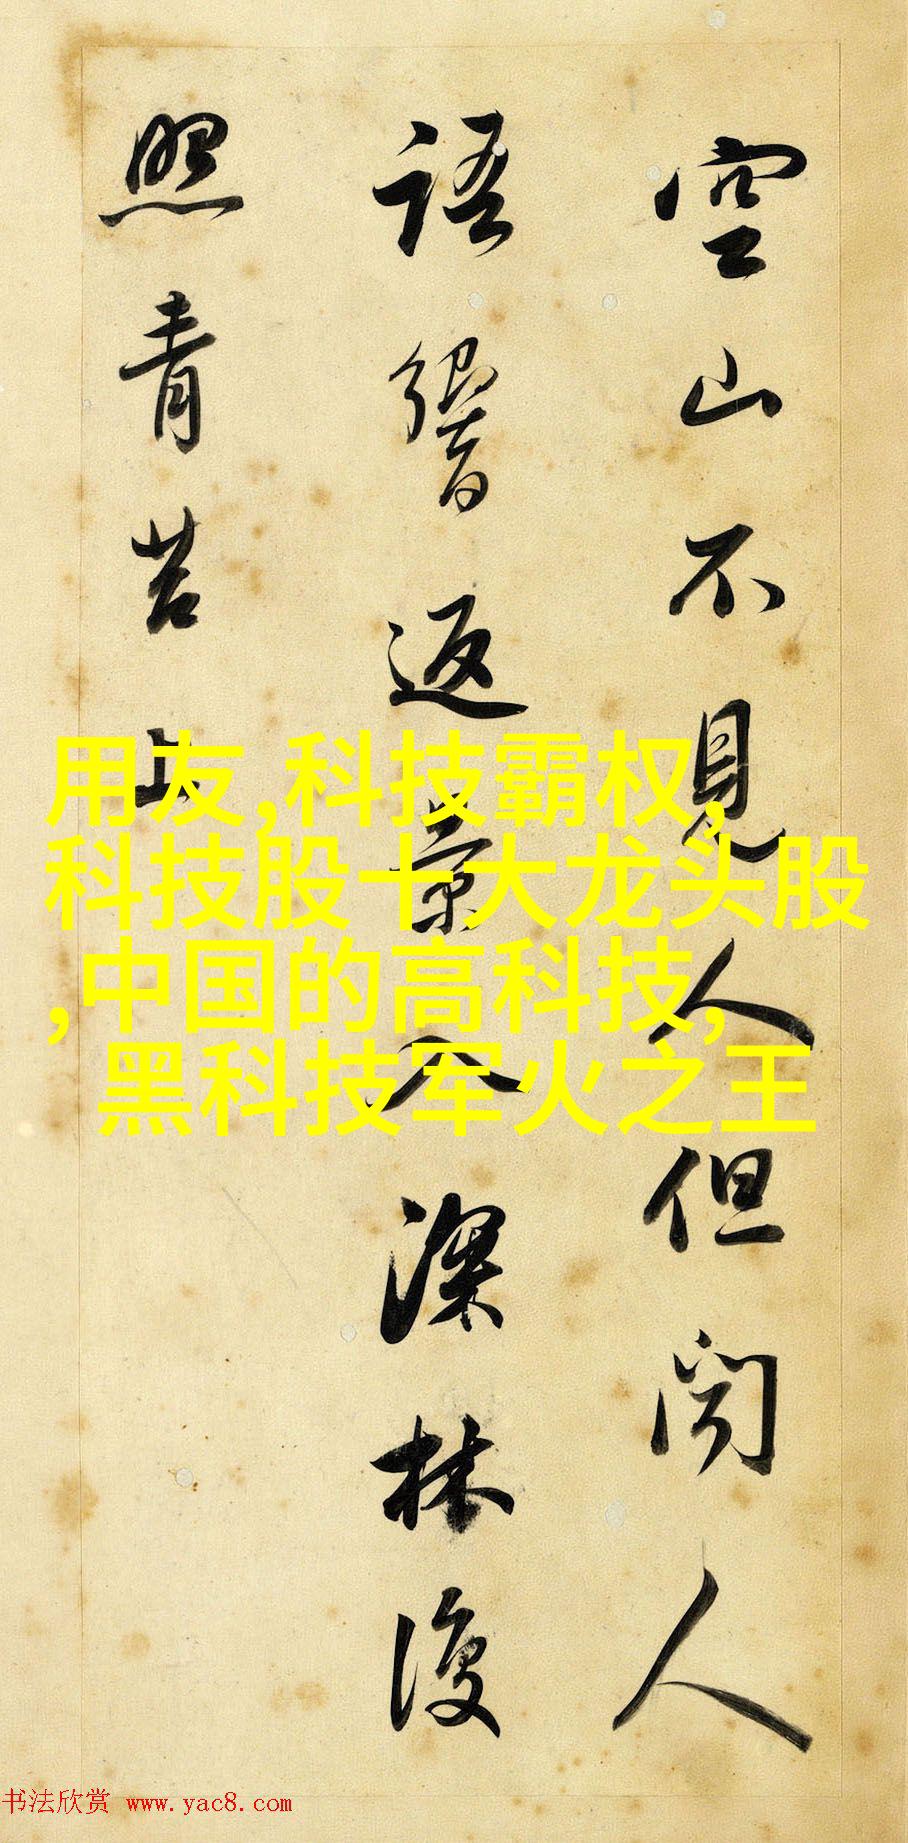 空山不見人但聞人
語響返景入深林復
照青苔上
用友,科技霸权,
科技股十大龙头股
,中国的高科技,
黑科技军火之王
书法欣赏 www.yac8.com